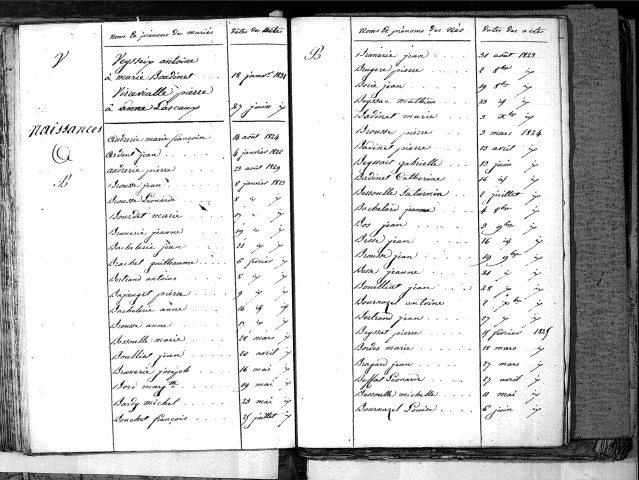 V
Noms & prénoms des mariés Dates des actes
Veyssix antoine
à marie Boudinet 18 janv. 1831
Virevialle pierre
à anne Lascaux 27 juin id
Naissances
A
andrerie marie françoise 14 août 1824
ardent jean 4 janvier 1820
andrerie pierre 23 août 1829
B
Brousse jean 8 janvier 1823
Brousse Léonarde 8 id
Bourdet marie 17 id
Brunerie jeanne 19 id
Bachelerie jean 20 id
Brachet guilhaume 6 février id
Bertrand antoine 8 id
Bajanget pierre 9 id
Bachelerie anne 16 id id
Brousse anne 17 id
Bessoulle marie 28 mars id
Boulliat jean 20 avril id
Brunerie joseph 16 mai id
Bord marg.te 19 mai id
Bardy michel 23 mai id
Bonchet françois 25 juillet id
B
Noms & prénoms des nés Dates des actes
Brunerie jean 31 août 1823
Brugere pierre 2 8bre id
Borie jean 19 8bre id
Beyssac mathieu 23 id id
Badinet marie 3 Xbre id
Brousse pierre 3 mars 1824
Badinet pierre 13 avril id
Beyssat gabrielle 13 juin id
Badinet Catherine 16 id id
Bessoulle Saturnin 8 juillet id
Bachelard jeanne 4 8bre id
Bos jean 2 9bre id
Besse jean 16 id id
Brousse jean 19 9bre id
jeanne 21 id
Bouilliat jean 28 id
Bournazel antoine 8 Xbre id
Bertrand jean 27 id id
Beyssat pierre 15 février 1825
Bordes marie 18 mars id
Bragard jean 27 mars id
Beffat Léonarde 27 avril id
Bessoulle michelle 11 mai id
Bournazel Louise 6 juin id